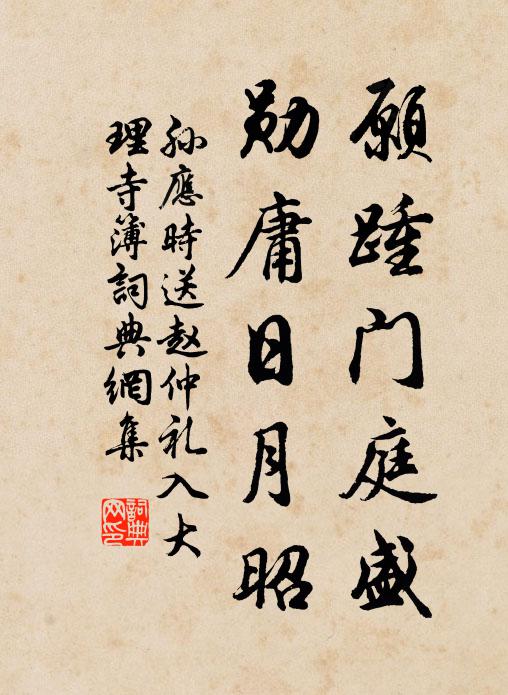 願踵门庭盛
勋庸日月昭
孙應時送赵仲礼入大
理寺簿詞典網集
詞典网印